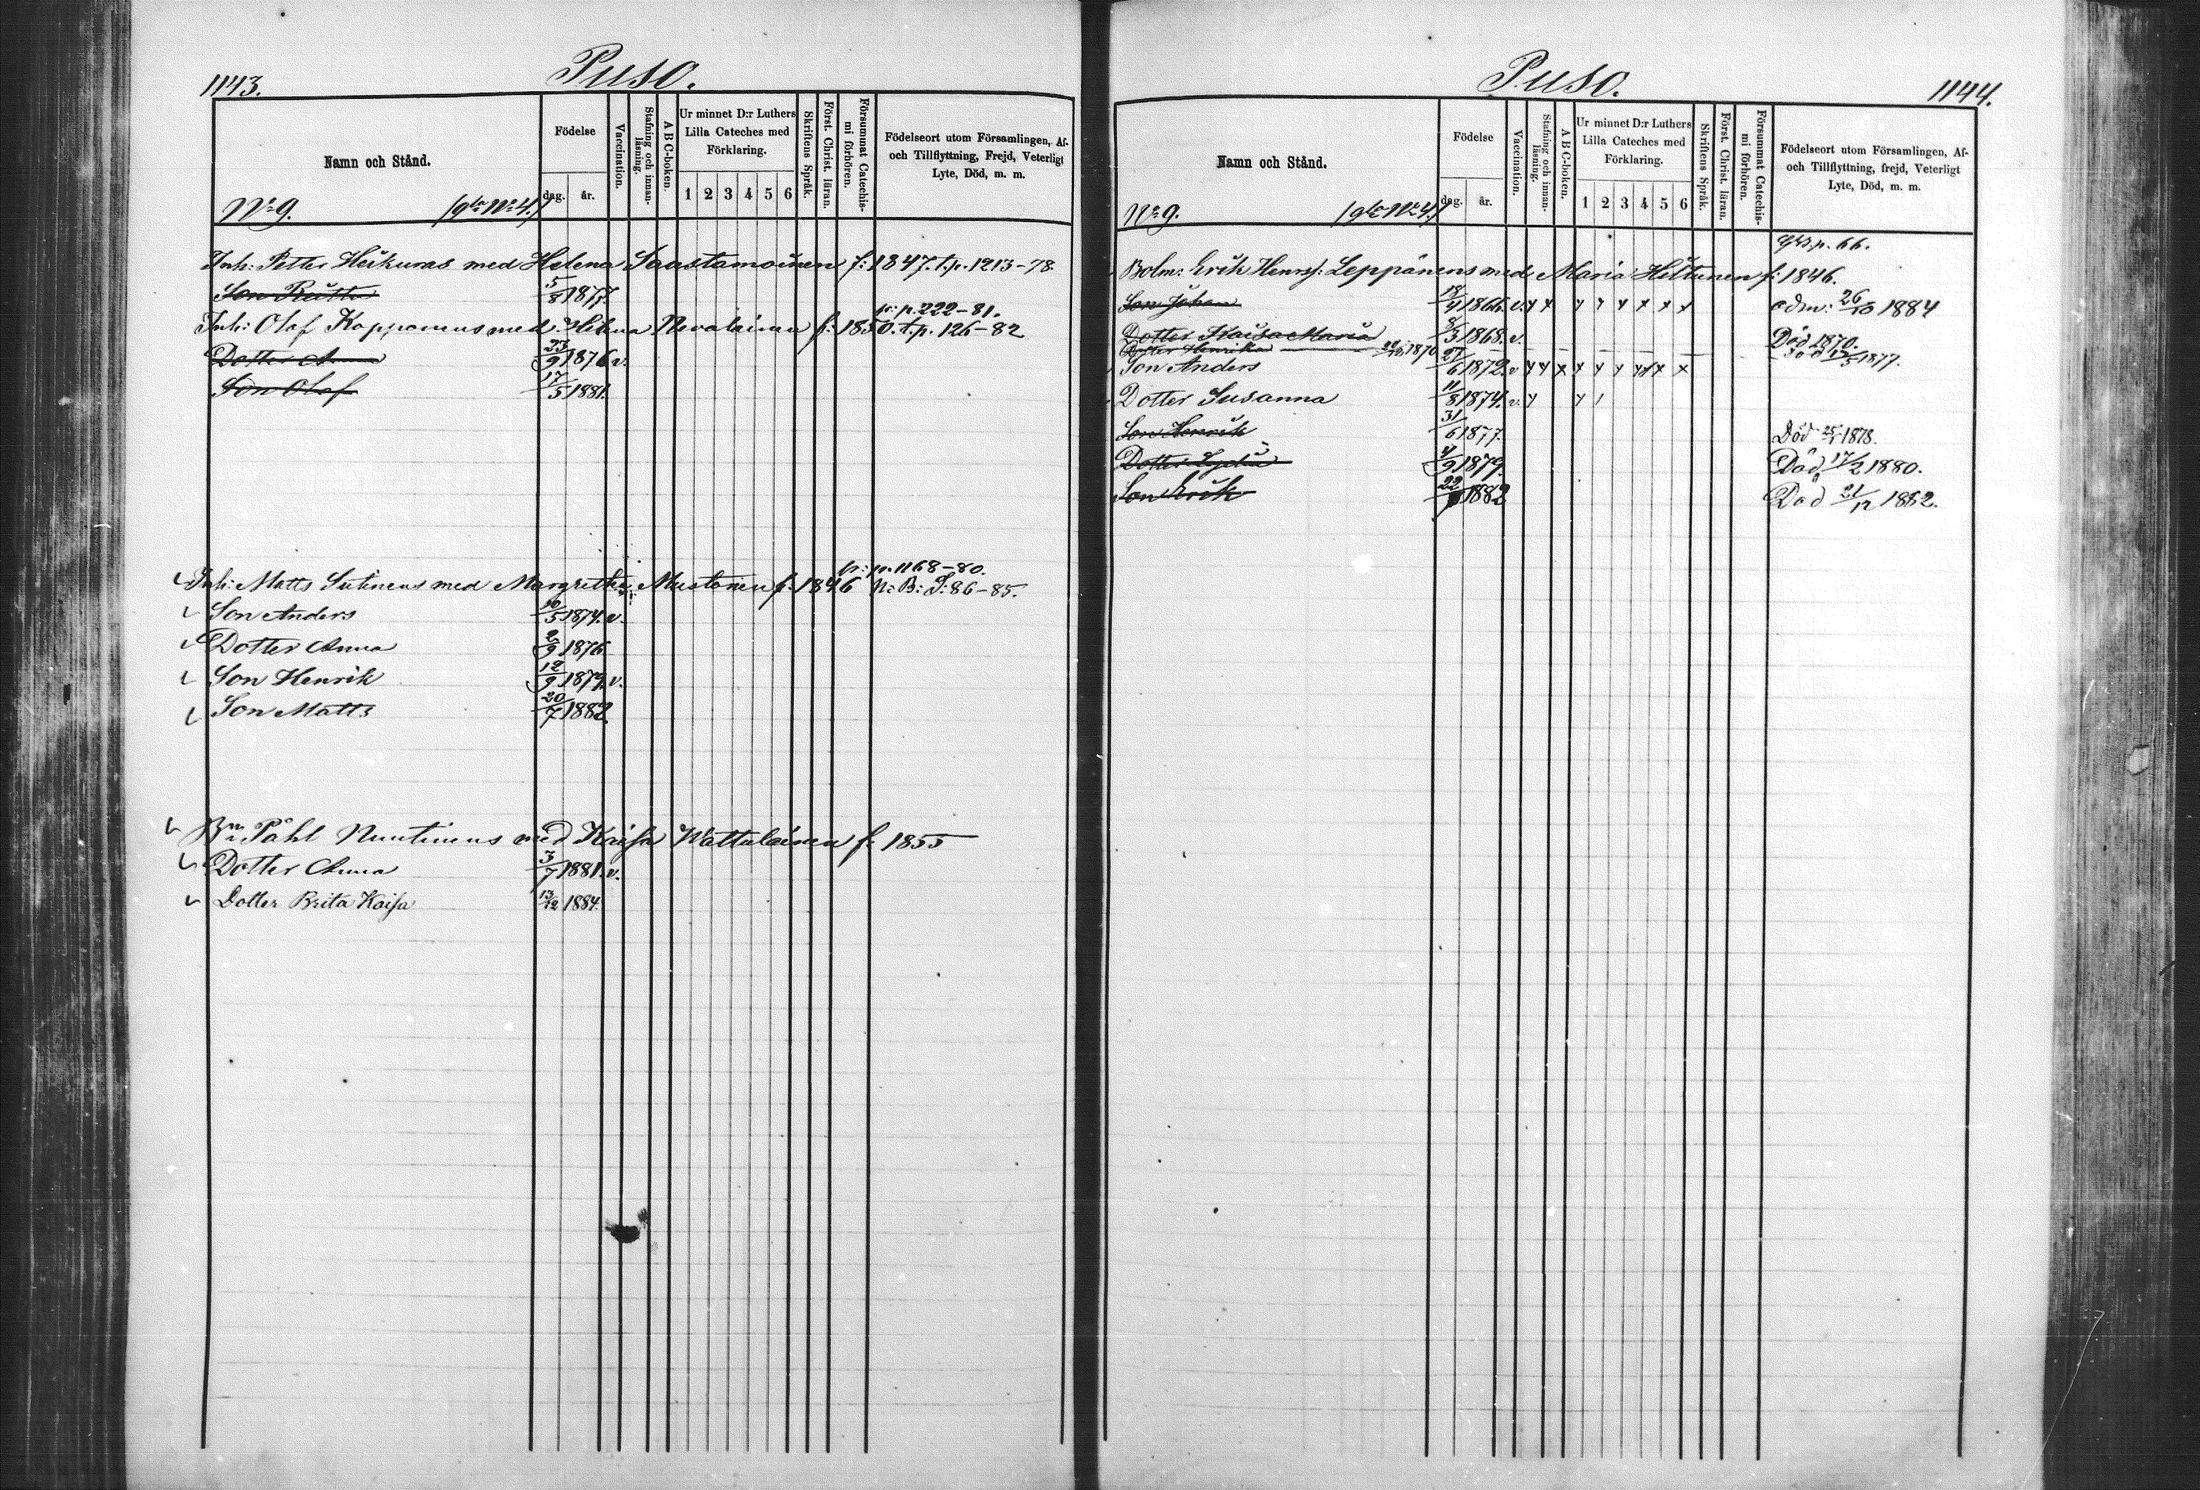 1143.
Puso.
Namn och Stånd.
Födelse
dag.
år.
Vaccination.
Stafning och innan-
läsning.
A B C-boken.
Ur minnet D:r Luthers
Lilla Cateches med
Förklaring.
1 2 3 4 5 6
Skriftens Språk.
Först. Christ. läran.
Försummat Catechis-
mi förhören.
Födelseort utom Församlingen, Af-
och Tillflyttning, Frejd, Veterligt
Lyte, Död, m. m.
No 9.
Inh: Petter Heikuras med Helena Saastamoinen f: 1847. t.p. 1213-78.
Son 5/8 1877.
fr: p. 222-81.
Inh: Olof Kopponens med Helena Nevalainen f: 1850. t.p. 126-82
Dotter Anna 23/9 1876 v.
Son Olof 17/5 1881.
fr: p. 1168-80.
Inh: Matts Sutinens med Margretha Mustonen f: 1846 N: B: S: 86-85.
Son Anders 10/5 1874. v.
Dotter Anna 2/9 1876
Son Henrik 12/9 1879. v.
Son Matts 20/7 1882.
Bn Påhl Nuutinens med Kaisa Wattulainen f: 1855
Dotter Anna 3/7 1881. v.
Dotter Brita Kaisa 13/12 1884.
Puso.
1144.
Namn och Stånd.
Födelse
dag.
år.
Vaccination.
Stafning och innan-
läsning.
A B C-boken.
Ur minnet D:r Luthers
Lilla Cateches med
Förklaring.
1 2 3 4 5 6
Skriftens Språk.
Först. Christ. läran.
Försummat Catechis-
mi förhören.
Födelseort utom Församlingen, Af-
och Tillflyttning, frejd, Veterligt
Lyte, Död, m. m.
No 9.
p. 66.
Bolm: Erik Henrs: Leppänens med Maria Hiltunen f: 1846.
Son Johan 18/4 1866. v. adm: 26/10 1884
Dotter Kaisa Maria 8/3 1868. v. Död 1870.
Dotter Henrika 1870 Död 1877.
Son Anders 21/6 1872. v
Dotter Susanna 11/8 1874. v.
Son Henrik 31/6 1877. Död 25/1 1878.
Dotter Lydia 4/9 1879. Död 17/2 1880.
Son Erik 22/ 1882 Död 21/12 1882.